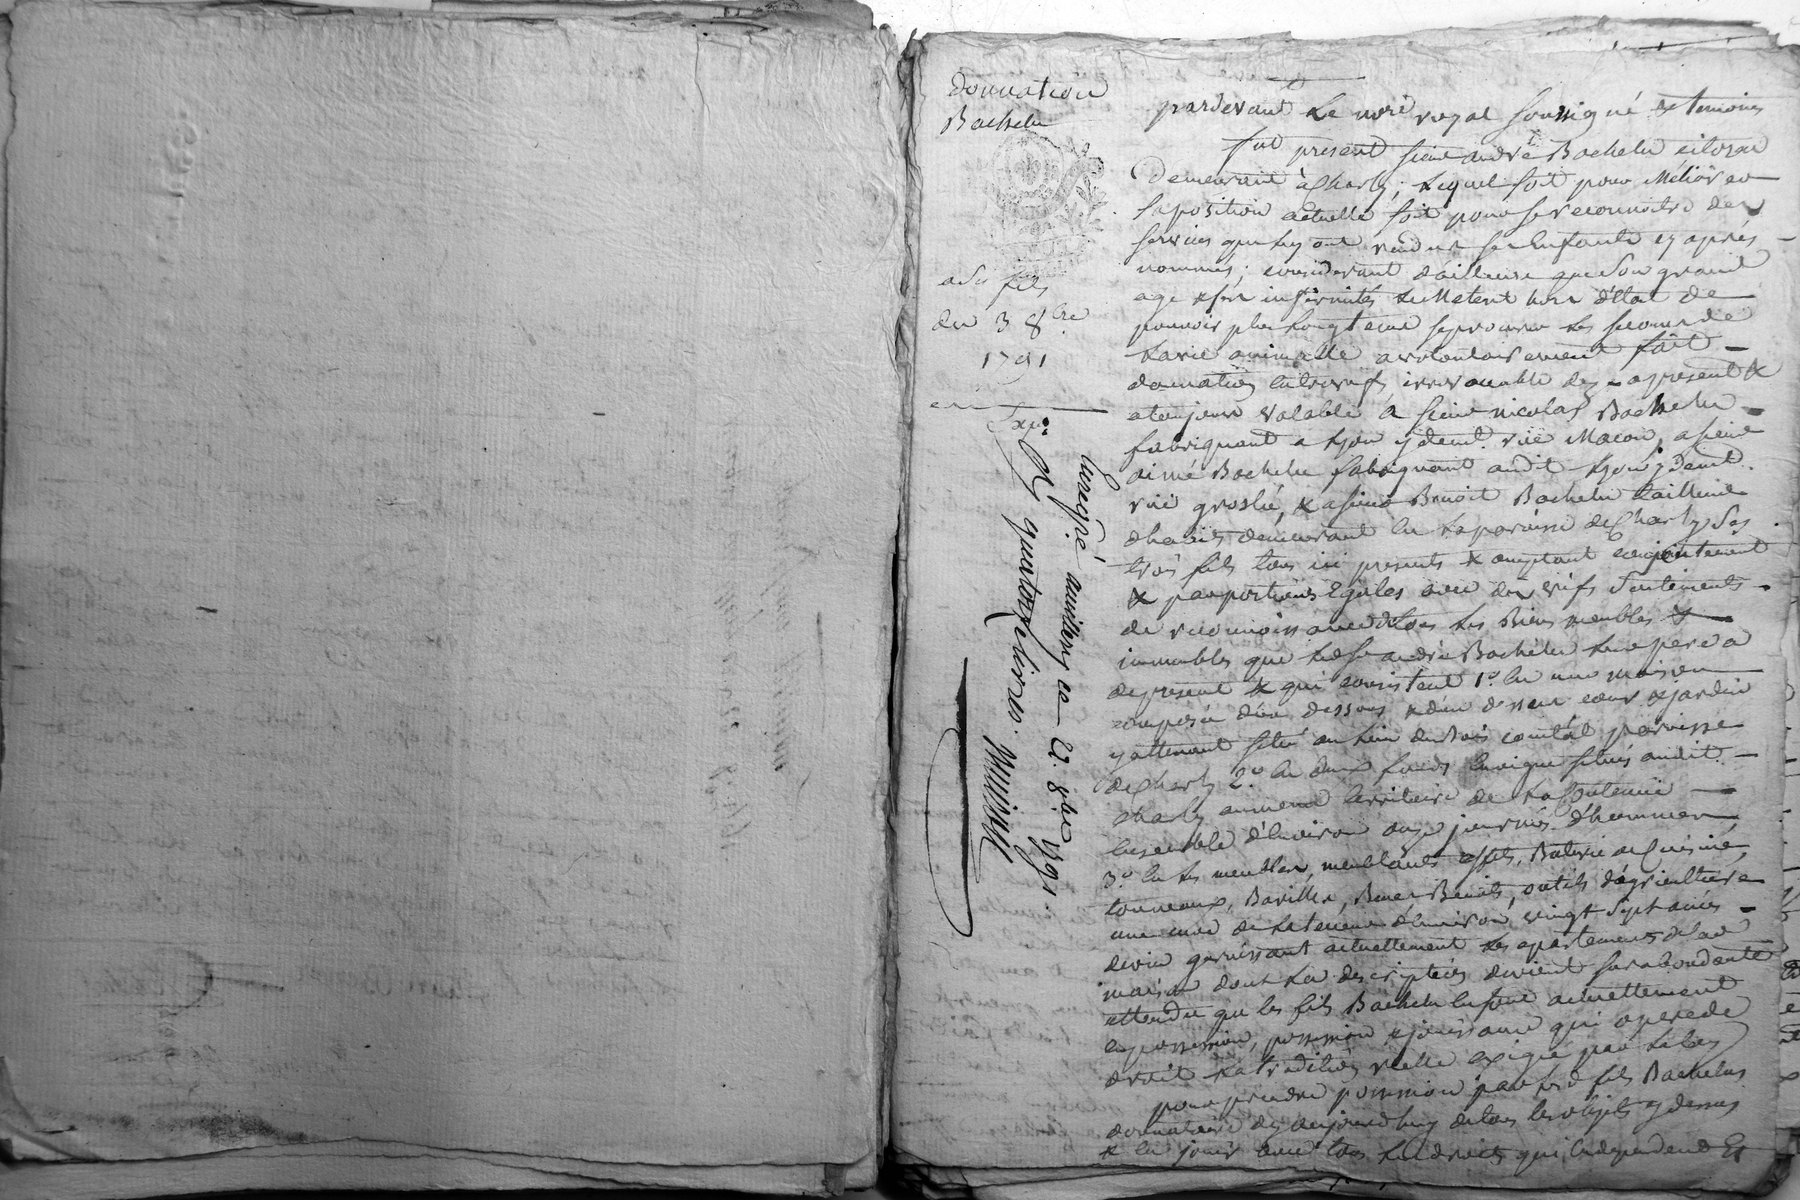 donnation
Bachelu
a ses fils
du 3 8bre
1791
Exp.
R quatorze livres. Musison
Enregré a millery ce 23. 8bre 1791.
pardevant Le nore royal soussigné & temoins
fut present sieur andré Bachelu citoyen
demeurant à Charly; Lequel soit pour Meliorer
sa position actuelle soit pour se reconnaitre des
services que luy ont rendus ses enfants cy après
nommés; considerant d'ailleurs que son grand
age & ses infirmités Le Metent hors d'Etat de
pouvoir plus Longtems se procurer Les secours de
La vie animalle a volontairement fait
donnation Entrevifs irrevocable des apresent &
atoujours valable à sieur nicolas Bachelu
fabriquant a Lyon y demt. rüe Macon, a sieur
aimé Bachelu fabriquant audit Lyon y demt.
rüe groslée, & a sieur Benoit Bachelu tailleur
dhabits demeurant en La paroisse de Charly, ses
trois fils tous ici presents & acceptant conjointement
& par portions Egales avec des vifs sentiments
de reconnoissance de tous Les Biens meubles &
immeubles que Ledt sr andré Bachelu Leur pere a
de present & qui consistent 1.° En une maison
composée d'un dessous & d'un dessus cour & jardin
y attenant situé au Lieu du Bois comtal paroisse
de Charly 2.° En deux fonds En vigne situés audit
Charly au meme territoire de
Ensemble d'Environ onze journées d'hommes
3.° En Les meubles, meublants effets, Baterie de Cuisine,
tonneaux, Barilles, Benes Benots, outils d'agriculture
une cuve de La teneur d'Environ vingt sept anées
de vin garnissant actuellement Les apartements de lade
maison dont La description devient surabondante
attendu que les fils Bachelu En sont actuellement
En possession, possession & jouissance qui opere de
droit La tradition reelle exigée par La loy
pour prendre possession par lesd fils Bachelus
donnataires dez aujourd'huy de tous les objets cy dessus
& En jouir avec tous Les droits qui En dependent Et